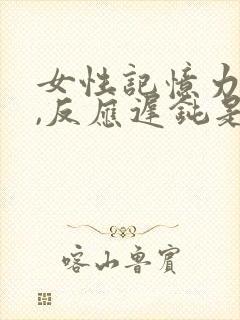 女性記憶力
,反應遲鈍是
喀山魯賓